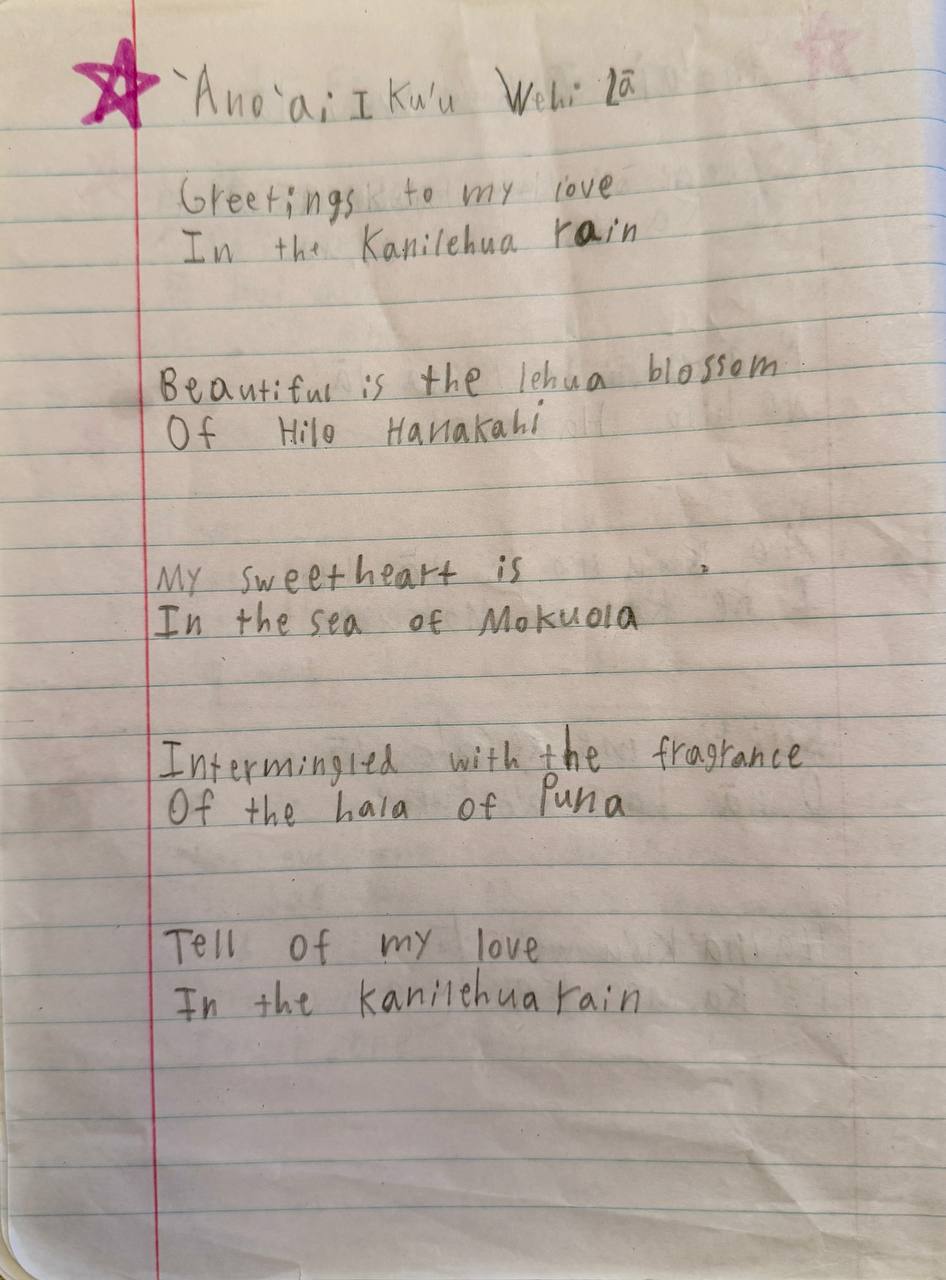 `Ano`ai I Ku'u Wehi Lā
Greetings to my love
In the Kanilehua rain
Beautiful is the lehua blossom
Of Hilo Hanakahi
My sweetheart is
In the sea of Mokuola
Intermingled with the fragrance
Of the hala of Puna
Tell of my love
In the kanilehua rain